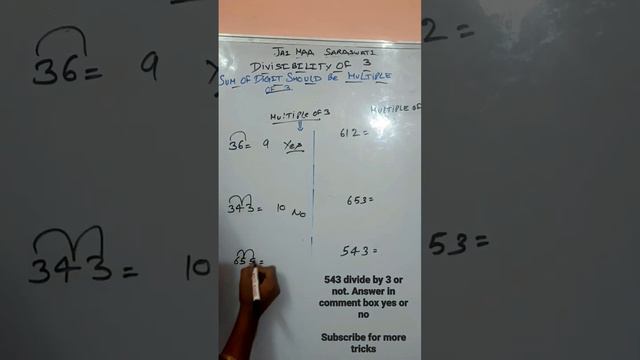 JAI MAA SARASWATI
DIVISIBILITY OF 3
SUM OF DIGIT SHOULD BE MULTIPLE
OF 3.
MULTIPLE OF 3
MULTIPLE OF
36 = 9 Yes
612 =
343 = 10 No
653 =
655 =
543 =
543 divide by 3 or
not. Answer in
comment box yes or
no
Subscribe for more
tricks
36 = 9
343 = 10
2 =
53 =